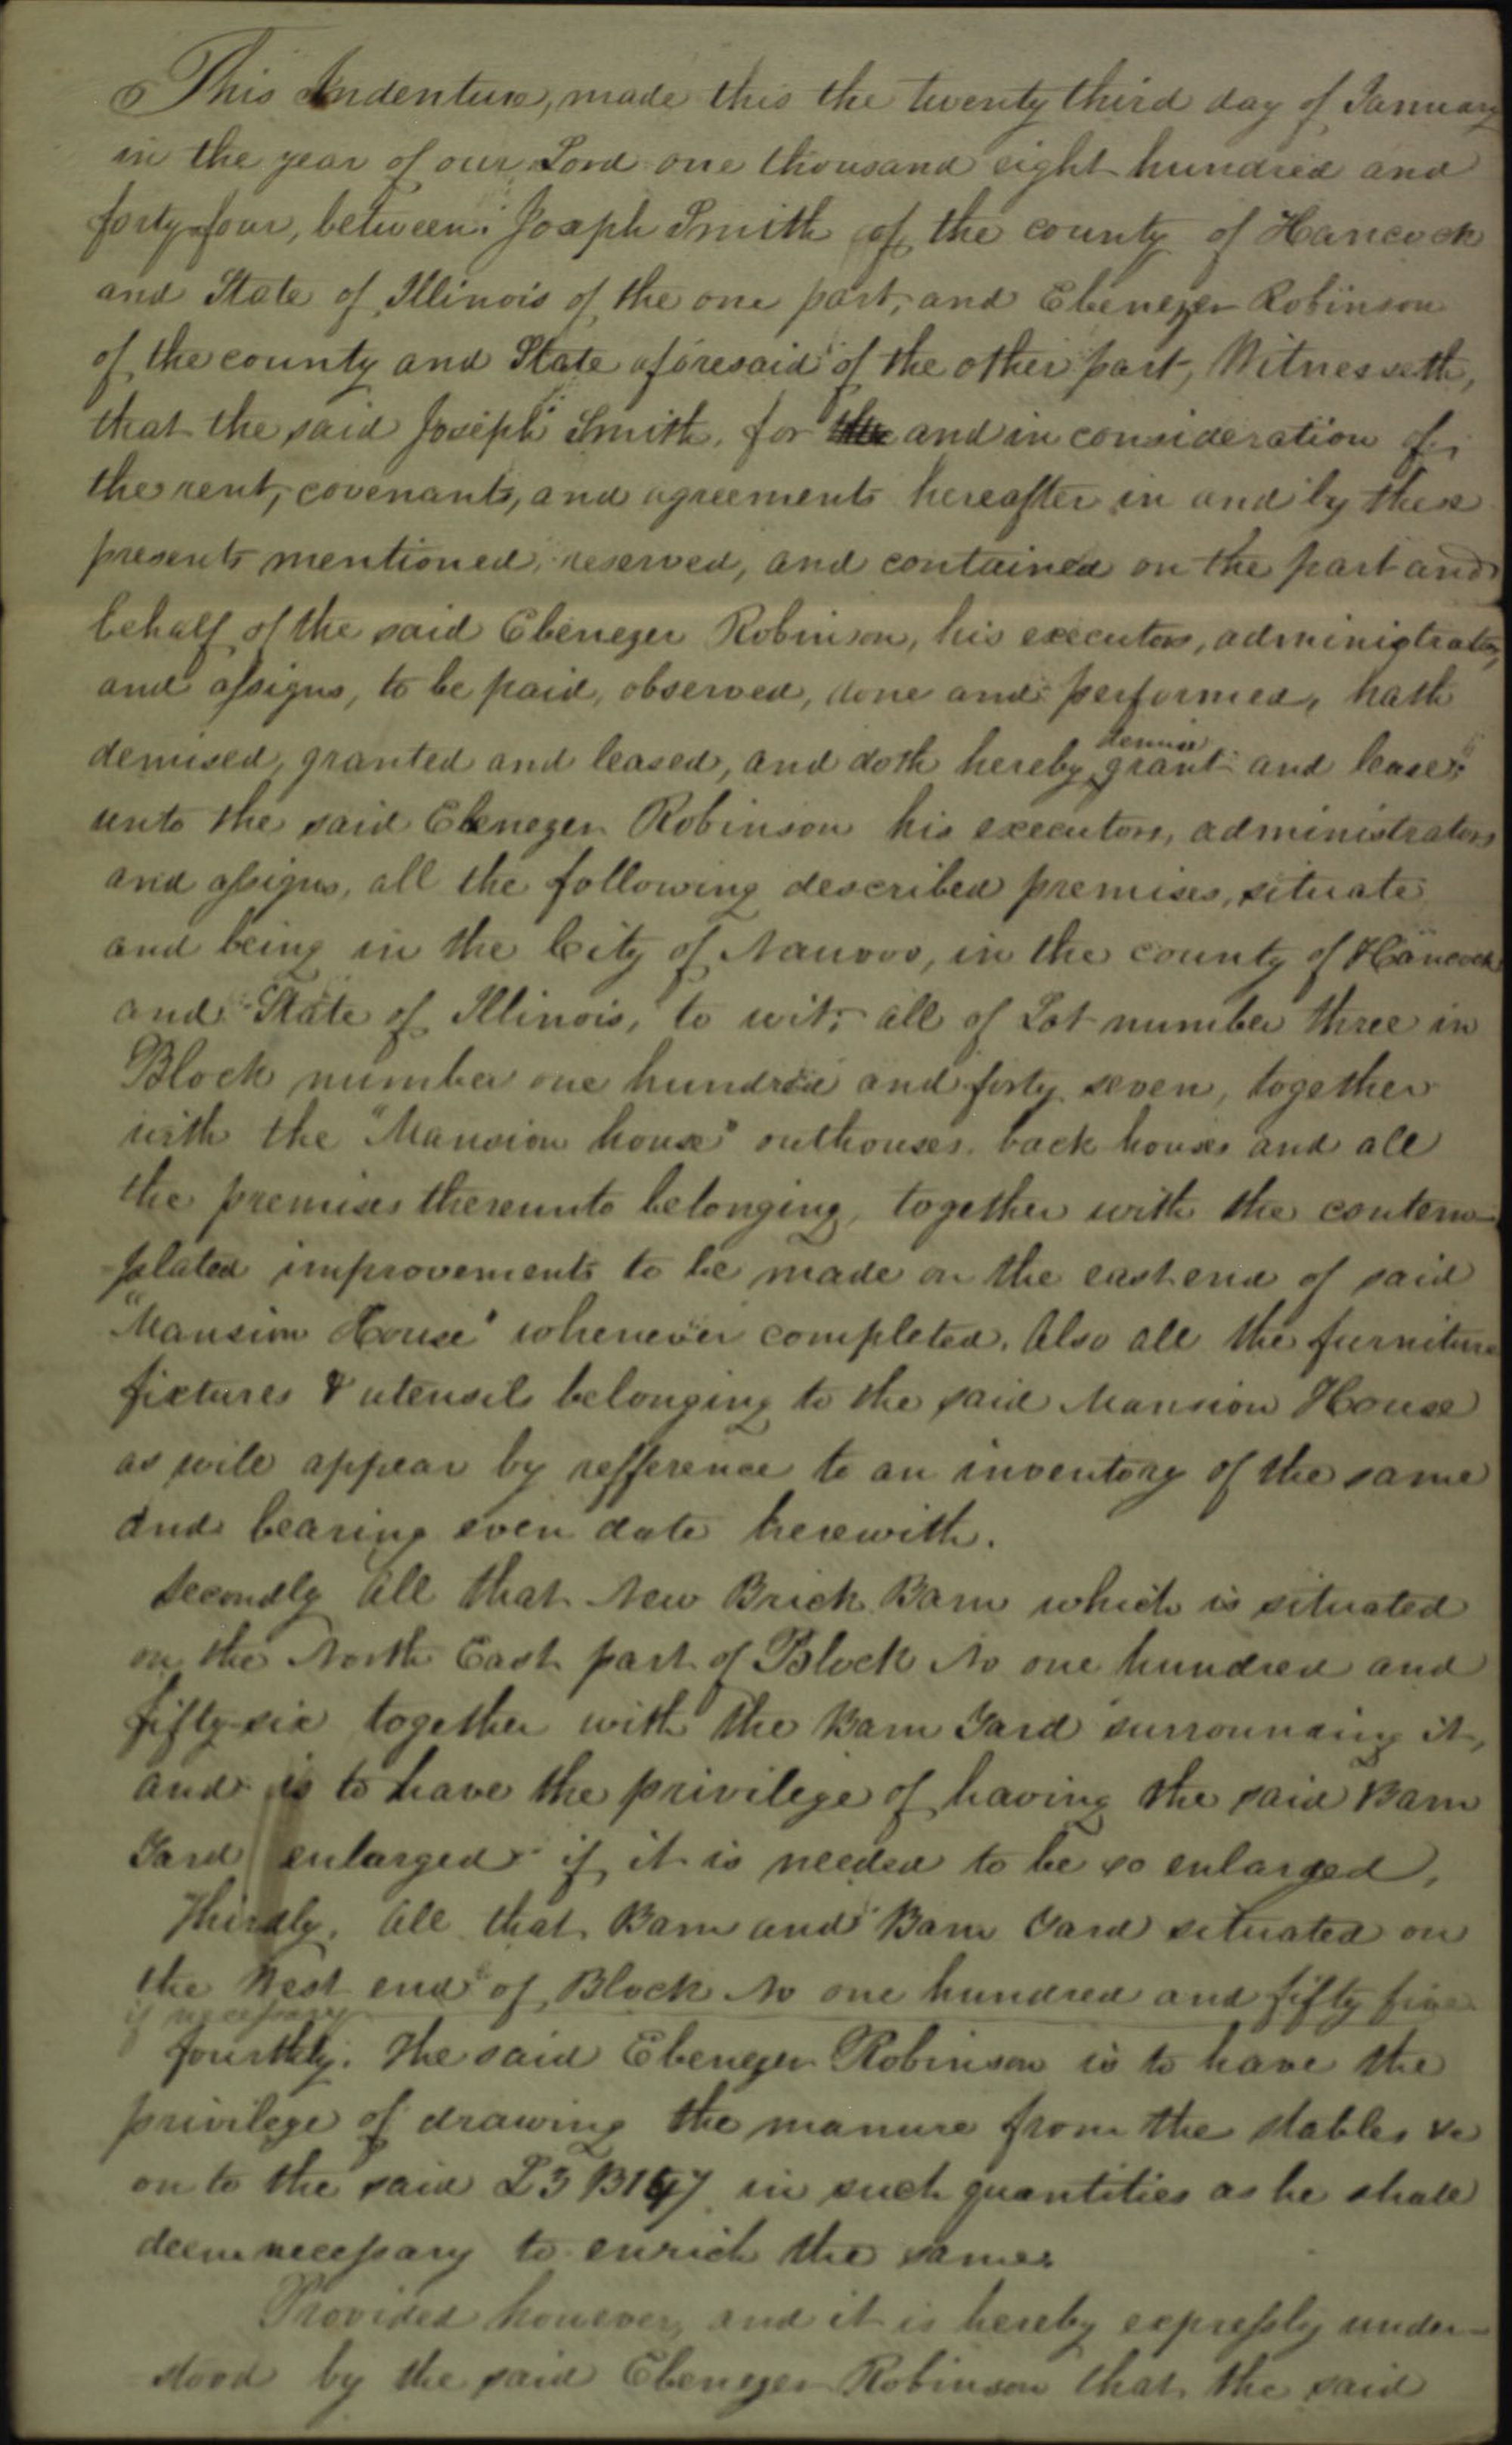 This Indenture, made this the twenty third day of January
in the year of our Lord one thousand eight hundred and
forty-four, between Joseph Smith of the county of Hancock
and State of Illinois of the one part, and Ebenezer Robinson
of the county and State aforesaid of the other part, Witnesseth,
that the said Joseph Smith, for the and in consideration of
the rent, covenants, and agreements hereafter in and by these
presents mentioned, reserved, and contained on the part and
behalf of the said Ebenezer Robinson, his executors, administrators,
and assigns, to be paid, observed, done and performed, hath
demised, granted and leased, and doth hereby demise grant and lease
unto the said Ebenezer Robinson his executors, administrators
and assigns, all the following described premises, situate
and being in the City of Nauvoo, in the county of Hancock
and State of Illinois, to wit; all of Lot number three in
Block number one hundred and forty seven, together
with the "Mansion house" outhouses, back houses and all
the premises thereunto belonging, together with the contem-
plated improvements to be made on the east end of said
"Mansion House" whenever completed. Also all the furniture
fixtures & utensils belonging to the said Mansion House
as will appear by refference to an inventory of the same
and bearing even date herewith.
Secondly All that New Brick Barn which is situated
on the North East part of Block No one hundred and
fifty-six together with the Barn Yard surrounding it,
and is to have the privilege of having the said Barn
Yard enlarged if it is needed to be so enlarged,
Thirdly, All that Barn and Barn Yard situated on
the West end of Block No one hundred and fifty five
if necessary
fourthly. The said Ebenezer Robinson is to have the
privilege of drawing the manure from the stables &c
on to the said L3 B147 in such quantities as he shall
deem necessary to enrich the same.
Provided however, and it is hereby expressly under-
stood by the said Ebenezer Robinson that the said